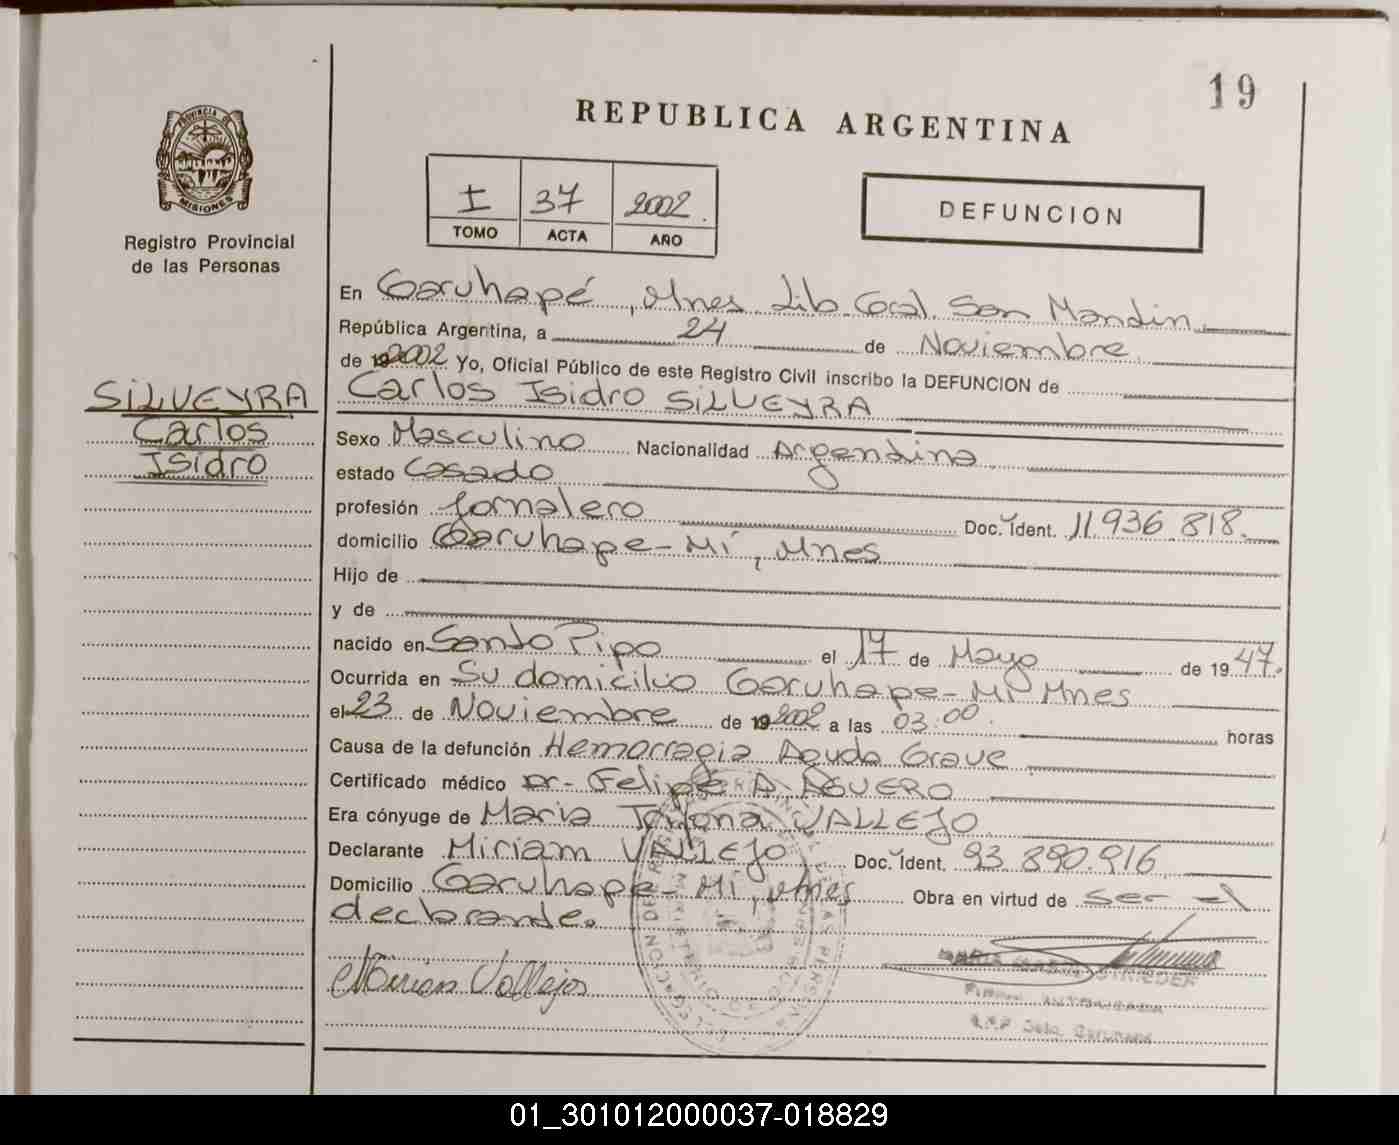 19
REPUBLICA ARGENTINA
PROVINCIA DE
MISIONES
Registro Provincial
de las Personas
I 37 2002.
TOMO ACTA AÑO
DEFUNCION
En Garuhapé, Mnes Lib. Gral. San Mandin
República Argentina, a 24 de Noviembre
de 192002 Yo, Oficial Público de este Registro Civil inscribo la DEFUNCION de
Carlos Isidro SILVEYRA
SILVEYRA
Carlos
Isidro
Sexo Masculino Nacionalidad Argendina
estado Casado
profesión Jornalero Doc. Ident. 11.936.818.
domicilio Garuhape-Mí, Mnes
Hijo de
y de
nacido en Sando Pipo el 17 de Mayo de 1947.
Ocurrida en Su domicilio Garuhape-Mí Mnes
el 23 de Noviembre de 192002 a las 03.00. horas
Causa de la defunción Hemorragia Aguda Grave
Certificado médico Dr. Felipe A. AGUERO
Era cónyuge de Maria VALLEJO
Declarante Miriam VALLEJO Doc. Ident. 93.890.916
Domicilio Garuhape-Mí, Mnes Obra en virtud de ser el
declarande.
Mirian Vallejos
STRIEDER
01_301012000037-018829